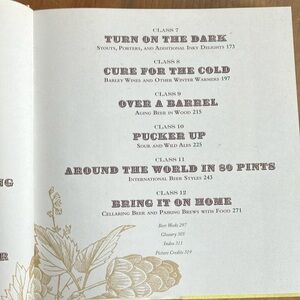 CLASS 7
TURN ON THE DARK
STOUTS, PORTERS, AND ADDITIONAL INKY DELIGHTS 173
CLASS 8
CURE FOR THE COLD
BARLEY WINES AND OTHER WINTER WARMERS 197
CLASS 9
OVER A BARREL
AGING BEER IN WOOD 215
CLASS 10
PUCKER UP
SOUR AND WILD ALES 225
CLASS 11
AROUND THE WORLD IN 80 PINTS
INTERNATIONAL BEER STYLES 243
CLASS 12
BRING IT ON HOME
CELLARING BEER AND PAIRING BREWS WITH FOOD 271
Beer Weeks 297
Glossary 303
Index 311
Picture Credits 319
NG
R